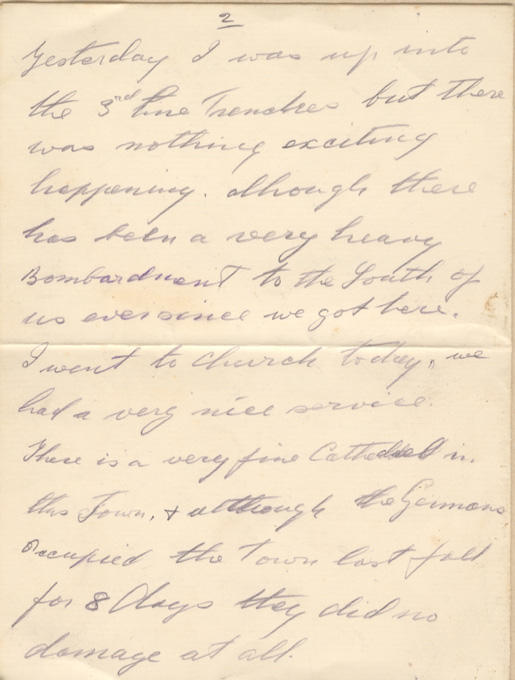 2
Yesterday I was up into
the 3rd line Trenches but there
was nothing exciting
happening. although there
has been a very heavy
Bombardment to the South of
us ever since we got here.
I went to church today, we
had a very nice service.
There is a very fine Cathedral in
this Town, & although the Germans
occupied the Town last fall
for 8 Days they did no
damage at all.